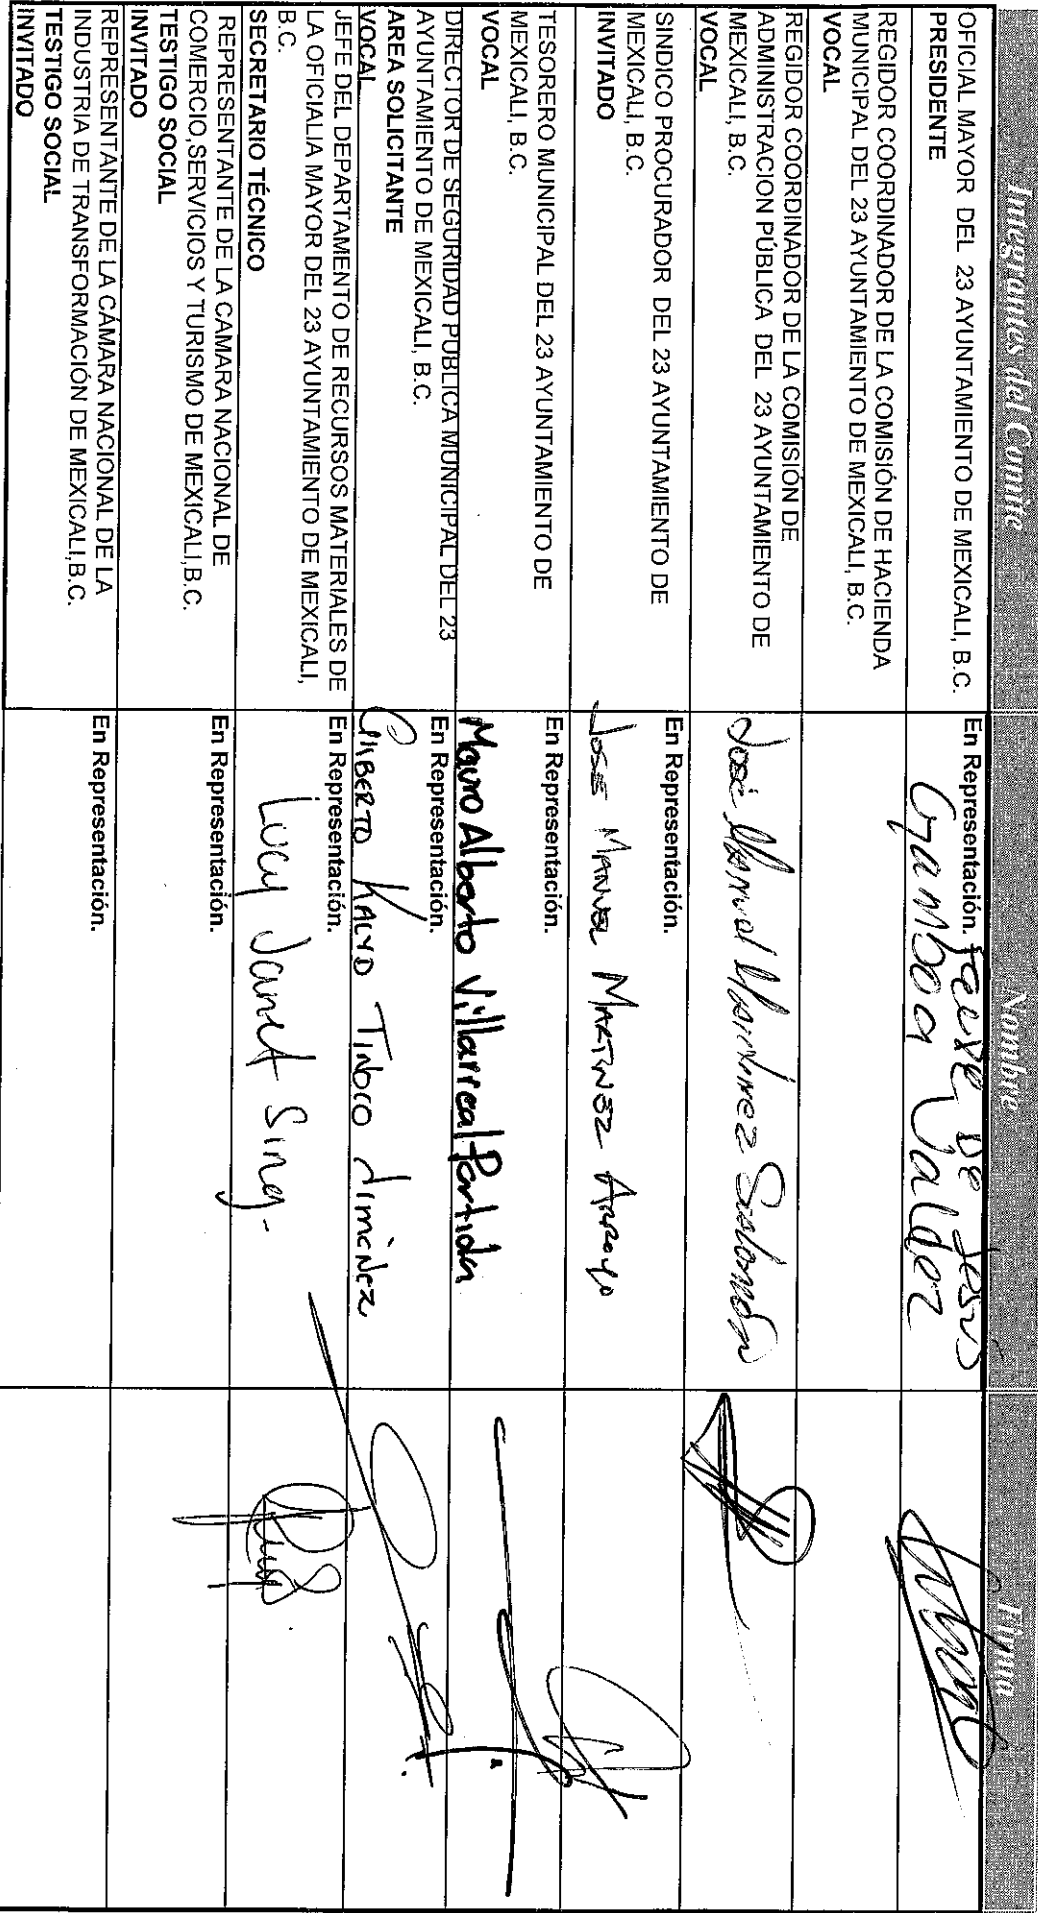 Integrantes del Comite Nombre Firma
OFICIAL MAYOR DEL 23 AYUNTAMIENTO DE MEXICALI, B.C.
PRESIDENTE
En Representación. de Jesús
Gamboa Valdez
REGIDOR COORDINADOR DE LA COMISIÓN DE HACIENDA
MUNICIPAL DEL 23 AYUNTAMIENTO DE MEXICALI, B.C.
VOCAL
REGIDOR COORDINADOR DE LA COMISIÓN DE
ADMINISTRACION PÚBLICA DEL 23 AYUNTAMIENTO DE
MEXICALI, B.C.
VOCAL
José Manuel Martinez Salomón
SINDICO PROCURADOR DEL 23 AYUNTAMIENTO DE
MEXICALI, B.C.
INVITADO
En Representación.
JOSE MANUEL MARTINEZ ARROYO
TESORERO MUNICIPAL DEL 23 AYUNTAMIENTO DE
MEXICALI, B.C.
VOCAL
En Representación.
Mauro Alberto Villarreal Partida
DIRECTOR DE SEGURIDAD PUBLICA MUNICIPAL DEL 23
AYUNTAMIENTO DE MEXICALI, B.C.
AREA SOLICITANTE
VOCAL
En Representación.
GILBERTO KALYD TINOCO JIMÉNEZ
JEFE DEL DEPARTAMENTO DE RECURSOS MATERIALES DE
LA OFICIALIA MAYOR DEL 23 AYUNTAMIENTO DE MEXICALI,
B.C.
SECRETARIO TÉCNICO
En Representación.
Lucy Janet Sing.
REPRESENTANTE DE LA CAMARA NACIONAL DE
COMERCIO,SERVICIOS Y TURISMO DE MEXICALI,B.C.
TESTIGO SOCIAL
INVITADO
En Representación.
REPRESENTANTE DE LA CÁMARA NACIONAL DE LA
INDUSTRIA DE TRANSFORMACIÓN DE MEXICALI,B.C.
TESTIGO SOCIAL
INVITADO
En Representación.